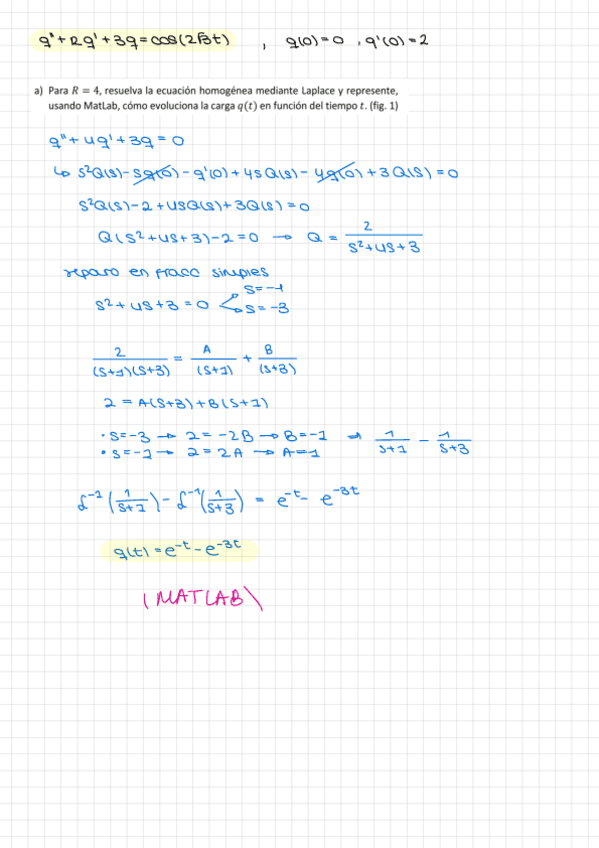 q''+Rq'+3q=cos(2√3t) , q(0)=0 , q'(0)=2
a) Para R = 4, resuelva la ecuación homogénea mediante Laplace y represente,
usando MatLab, cómo evoluciona la carga q(t) en función del tiempo t. (fig. 1)
q''+4q'+3q=0
↳ s²Q(s)-sq(0)-q'(0)+4sQ(s)-4q(0)+3Q(s)=0
s²Q(s)-2+4sQ(s)+3Q(s)=0
Q(s²+4s+3)-2=0 → Q = 2/(s²+4s+3)
reparo en fracc simples
s²+4s+3=0 < s=-1 s=-3
2/((s+1)(s+3)) = A/(s+1) + B/(s+3)
2=A(s+3)+B(s+1)
• s=-3 → 2=-2B → B=-1 ⇒ 1/(s+1) - 1/(s+3)
• s=-1 → 2=2A → A=1
ℒ⁻¹(1/(s+1))-ℒ⁻¹(1/(s+3)) = e^-t - e^-3t
q(t)=e^-t-e^-3t
(MATLAB)